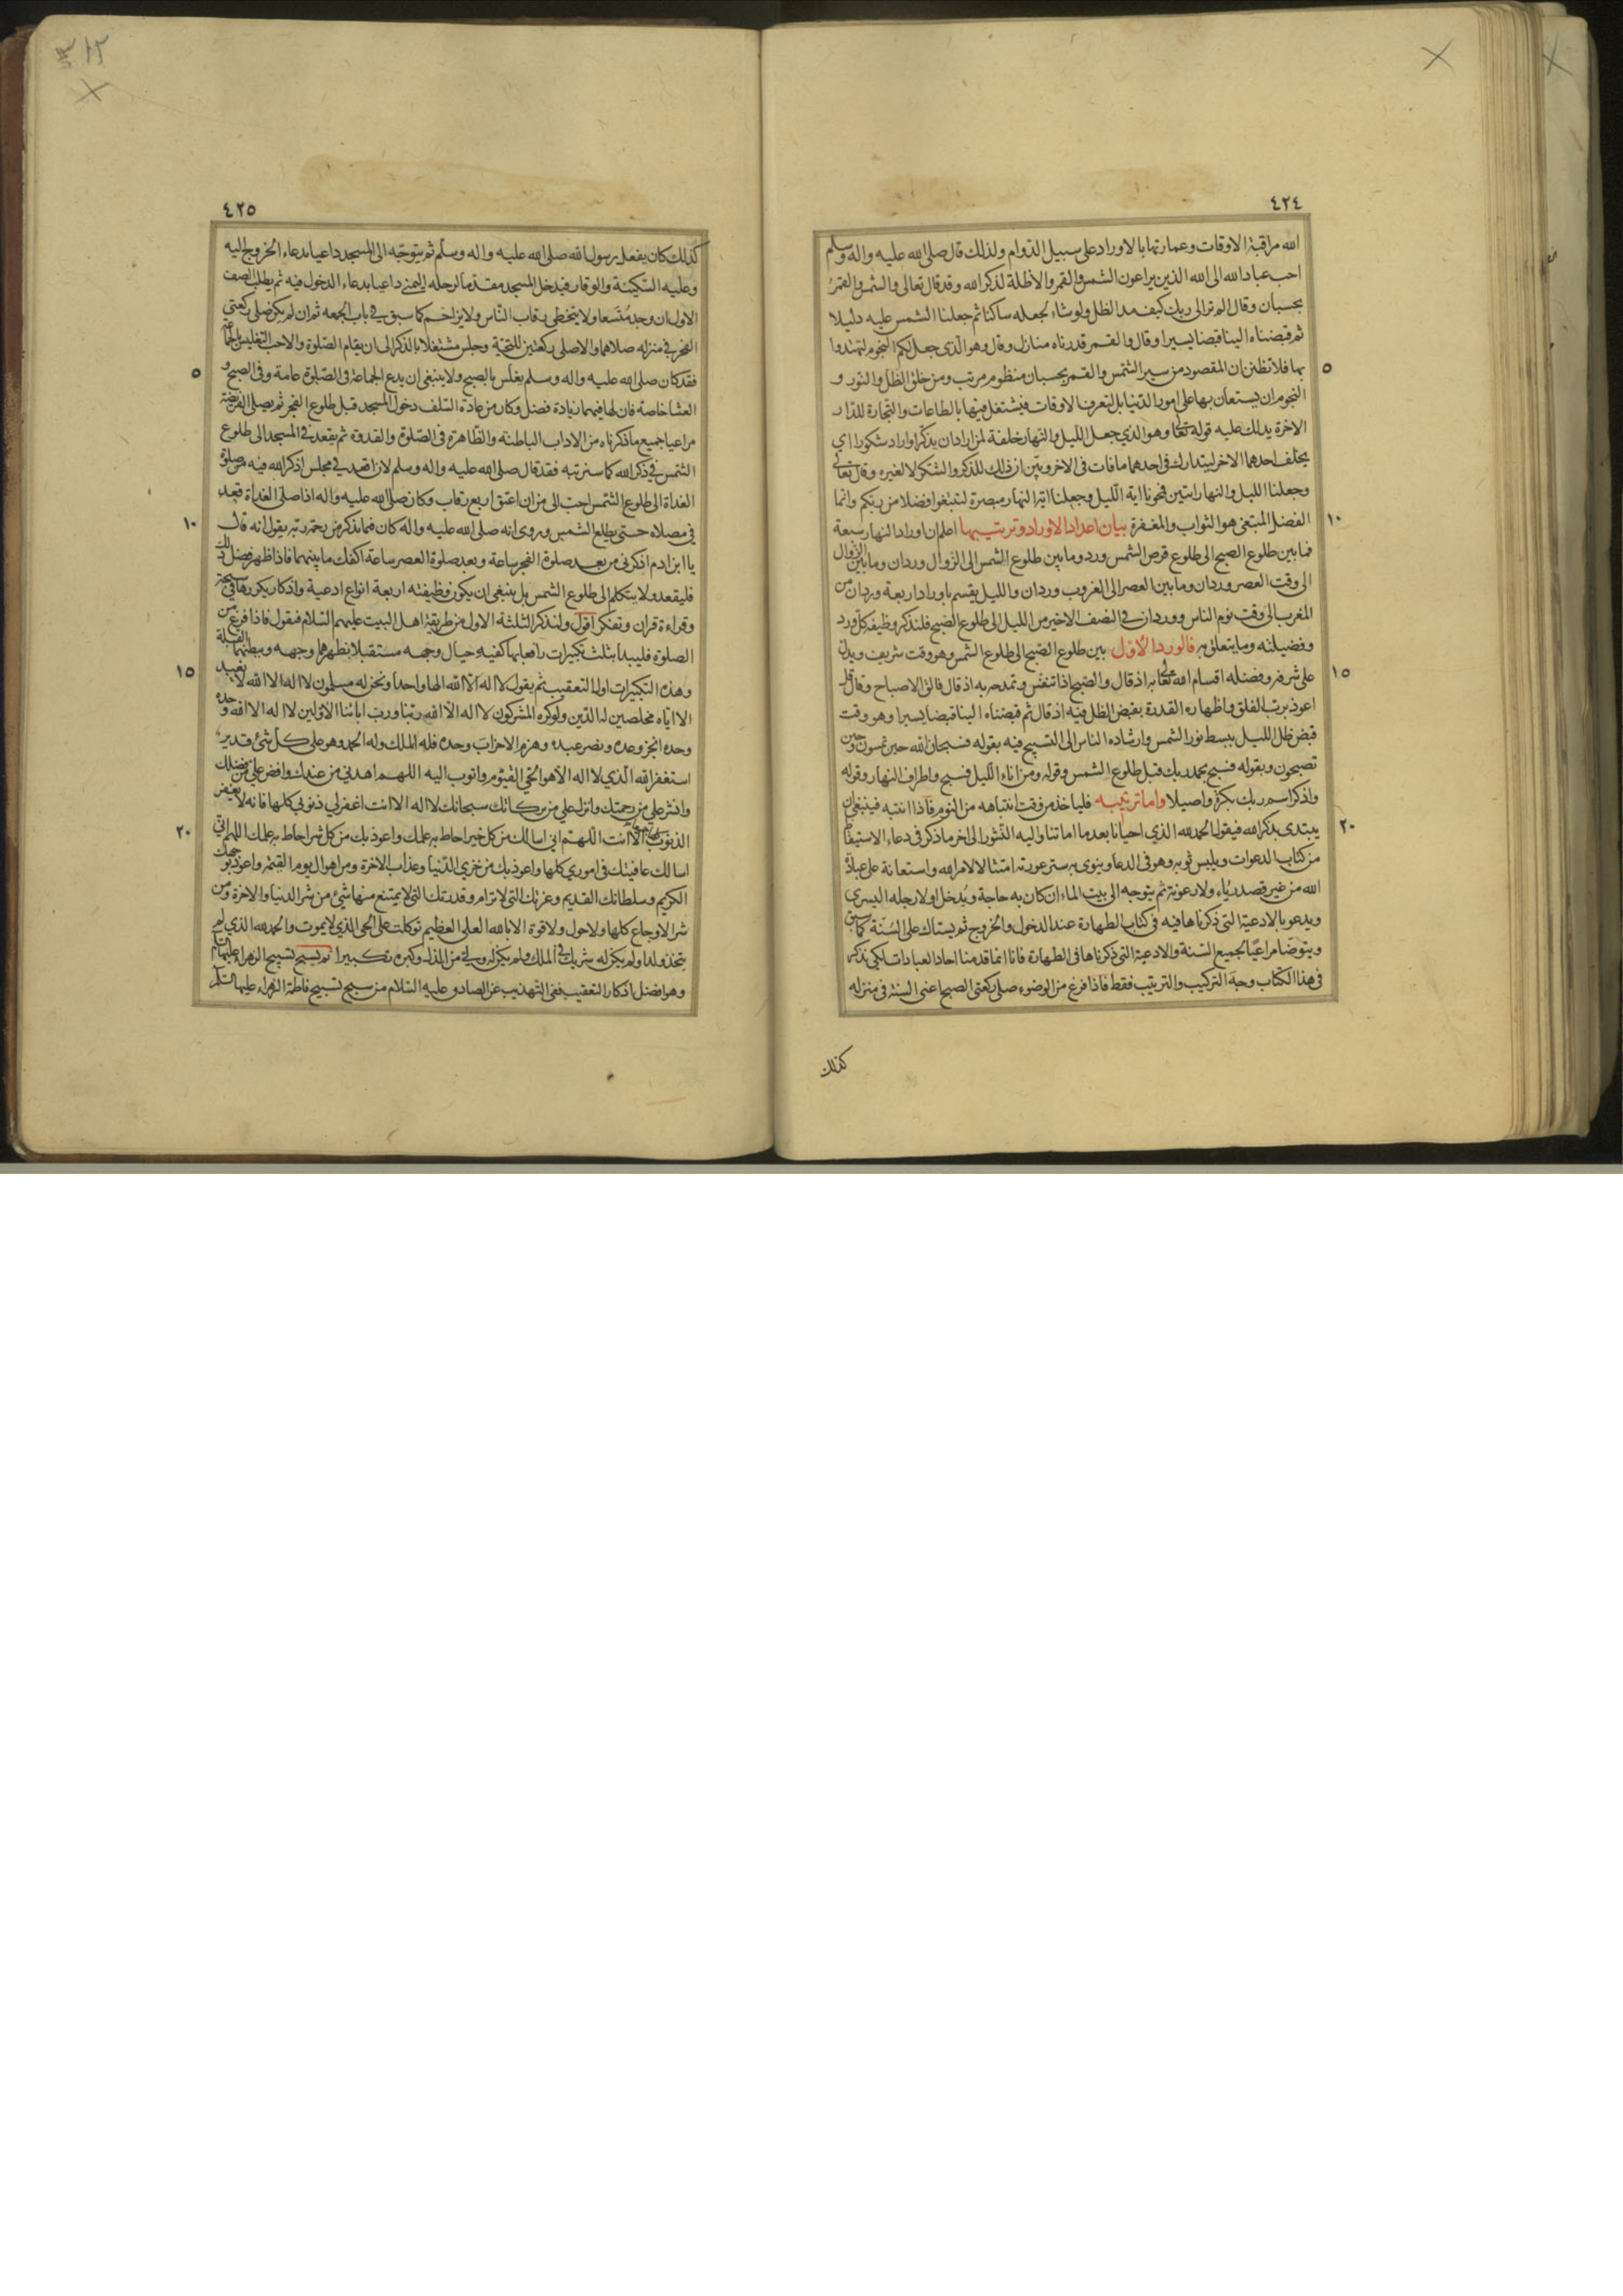 ٤٢٤
الله مراقبة الاوقات وعمارتها بالاوراد على سبيل الدّوام ولذلك قال صلى الله عليه واله وسلم
احب عباد الله الى الله الذين يراعون الشمس والقمر والاظلة لذكر الله وقد قال تعالى والشمس والقمرُ
بحسبان وقال الم تر الى ربك كيف مد الظل ولو شاء لجعله ساكنا ثم جعلنا الشمس عليه دليلا
ثم قبضناه الينا قبضا يسيرا وقال والقمر قدرناه منازل وقال وهو الّذى جعل لكم النجوم لتهتدوا
٥
بها فلا تظنن ان المقصود من سير الشمس والقمر بحسبان منظوم مرتب ومن خلق الظل والنور و
النجوم ان يستعان بها على امور الدّنيا بل لتعرف الاوقات فيشتغل فيها بالطاعات والتجارة للدّار
الاخرة يدلك عليه قوله تعالى وهو الذي جعل الليل والنهار خلفة لمن اراد ان يذكر او اراد شكورا اي
يخلف احدهما الاخر ليتدارك فى احدهما ما فات فى الاخر وبيّن ان ذلك للذكر والشكر لا لغيره وقال تعالى
وجعلنا الليل والنهار ايتين فمحونا اية الّليل وجعلنا اية النهار مبصرة لتبتغوا فضلا من ربكم وانما
١٠
الفضل المبتغى هو الثواب والمغفرة بيان اعداد الاوراد وترتيبها اعلم ان اوراد النهار سبعة
فما بين طلوع الصبح الى طلوع قرص الشمس ورد وما بين طلوع الشمس الى الزوال وردان وما بين الزوال
الى وقت العصر وردان وما بين العصر الى الغروب وردان والليل يقسم باوراد اربعة وردان من
المغرب الى وقت نوم الناس ووردان في النصف الاخير من الليل الى طلوع الصبح فلنذكر وظيفة كل ورد
وفضيلته وما يتعلق به فالورد الأوّل بين طلوع الصّبح الى طلوع الشمس وهو وقت شريف ويدلّ
١٥
على شرفه وفضله اقسام الله تعالى به اذ قال والصبح اذا تنفس وتمدحه به اذ قال فالق الاصباح وقال قل
اعوذ برب الفلق واظهاره القدرة بقبض الظل فيه اذ قال ثم قبضناه الينا قبضا يسيرا وهو وقت
قبض ظل الليل ببسط نور الشمس وارشاده الناس الى التسبيح فيه بقوله فسبحان الله حين تمسون وحين
تصبحون وبقوله فسبح بحمد ربك قبل طلوع الشمس وقوله ومن اناء الّليل فسبح واطراف النهار وقوله
واذكر اسم ربك بكرة واصيلا واما ترتيبه فلياخذ من وقت انتباهه من النوم فاذا انتبه فينبغى ان
٢٠
يبتدى بذكر الله فيقول الحمد لله الذي احيانا بعد ما اماتنا واليه النّشور الى اخر ما ذكر فى دعاء الاستيقاظ
من كتاب الدعوات ويلبس ثوبه وهو فى الدعا وينوى به ستر عورته امتثالا لامر الله واستعانة على عبادة
الله من غير قصد رياء ولا رعونة ثم يتوجه الى بيت الماء ان كان به حاجة ويُدخل اولا رجله اليسرى
ويدعو بالادعية التى ذكرناها فيه فى كتاب الطهارة عند الدخول والخروج ثم يستاك على السّنة كما سبق
ويتوضا مراعيًا لجميع السّنة والادعية التى ذكرناها فى الطهارة فانا انما قدمنا احاد العبادات لكى نذكر
فى هذا الكتاب وجه التركيب والترتيب فقط فاذا فرغ من الوضوء صلى ركعتى الصبح اعنى السنة فى منزله
كذلك
٤٢٥
كذلك كان يفعل رسول الله صلى الله عليه واله وسلم ثم يتوجّه الى المسجد داعيا بدعاء الخروج اليه
وعليه السّكينة والوقار فيدخل المسجد مقدما لرجله اليمنى داعيا بدعاء الدخول فيه ثم يطلب الصف
الاول ان وجد مُتّسعا ولا يتخطى رقاب النّاس ولا يزاحم كما سبق في باب الجمعه ثم ان لم يكن صلى ركعتى
الفجر في منزله صلاهما والا صلى ركعتين للتحيّة وجلس مشتغلا بالذكر الى ان يقام الصّلوة والاحب التغليس بالجماعة
٥
فقد كان صلى الله عليه واله وسلم يغلس بالصبح ولا ينبغى ان يدع الجماعة فى الصّلوة عامة وفى الصبح و
العشا خاصة فان لها فيهما زيادة فضل وكان من عادة السّلف دخول المسجد قبل طلوع الفجر ثم يصلى الفريضة
مراعيا جميع ما ذكرناه من الاداب الباطنه والظّاهرة فى الصّلوة والقدوة ثم يقعد في المسجد الى طلوع
الشّمس في ذكر الله كما سنرتبه فقد قال صلى الله عليه واله وسلم لان اقعد في مجلس اذكر الله فيه من صلوة
الغداة الى طلوع الشّمس احب الى من ان اعتق اربع رقاب وكان صلى الله عليه واله اذا صلى الغداة قعد
١٠
في مصلاه حتى يطلع الشمس وروى انه صلى الله عليه واله كان فيما يذكر من رحمة ربه يقول انه قال
يا ابن ادم اذكرنى من بعد صلوة الفجر ساعة وبعد صلوة العصر ساعة اكفك ما بينهما فاذا ظهر فضل ذلك
فليقعد ولا يتكلم الى طلوع الشمس بل ينبغى ان يكون وظيفته اربعة انواع ادعية واذكار يكررها في سبحة
وقراءة قران وتفكر اقول ولنذكر الثلثة الاول من طريقة اهل البيت عليهم السّلام فنقول فاذا فرغ من
الصلوة فليبدأ بثلث تكبيرات رافعا بها كفيه حيال وجهه مستقبلا بظهرهما وجهه وببطنهما القبلة
١٥
وهذه التكبيرات اول التعقيب ثم يقول لا اله الا الله الها واحدا ونحن له مسلمون لا اله الا الله لا نعبد
الا اياه مخلصين له الدّين ولو كره المشركون لا اله الا الله ربنا ورب ابائنا الاوّلين لا اله الا الله وحده
وحده انجز وعده ونصر عبده وهزم الاحزاب وحده فله الملك وله الحمد وهو على كل شئ قدير
استغفر الله الّذي لا اله الا هو الحي القيّوم واتوب اليه اللهم اهدني من عندك وافض علي من فضلك
وانشر علي من رحمتك وانزل علي من بركاتك سبحانك لا اله الا انت اغفر لي ذنوبي كلها فانه لا يغفر
٢٠
الذنوب كلها الا انت اللّهم اني اسالك من كل خير احاط به علمك واعوذ بك من كل شر احاط به علمك اللهم اني
اسالك عافيتك فى اموري كلها واعوذ بك من خزي الدّنيا وعذاب الاخرة ومن اهوال يوم القيمة واعوذ بوجهك
الكريم وسلطانك القديم وعزتك التى لا ترام وقدرتك التى لا يمتنع منها شئ من شر الدنيا والاخرة ومن
شر الاوجاع كلها ولا حول ولا قوة الا بالله العلى العظيم توكلت على الحى الذي لا يموت والحمد لله الذي لم
يتخذ ولدا ولم يكن له شريك في الملك ولم يكن له ولى من الذل وكبره تكبيرا ثم يسبح تسبيح الزهراء عليها السلام
وهو افضل اذكار التعقيب ففى التهذيب عن الصادق عليه السّلام من سبح تسبيح فاطمة الزهراء عليها السلام